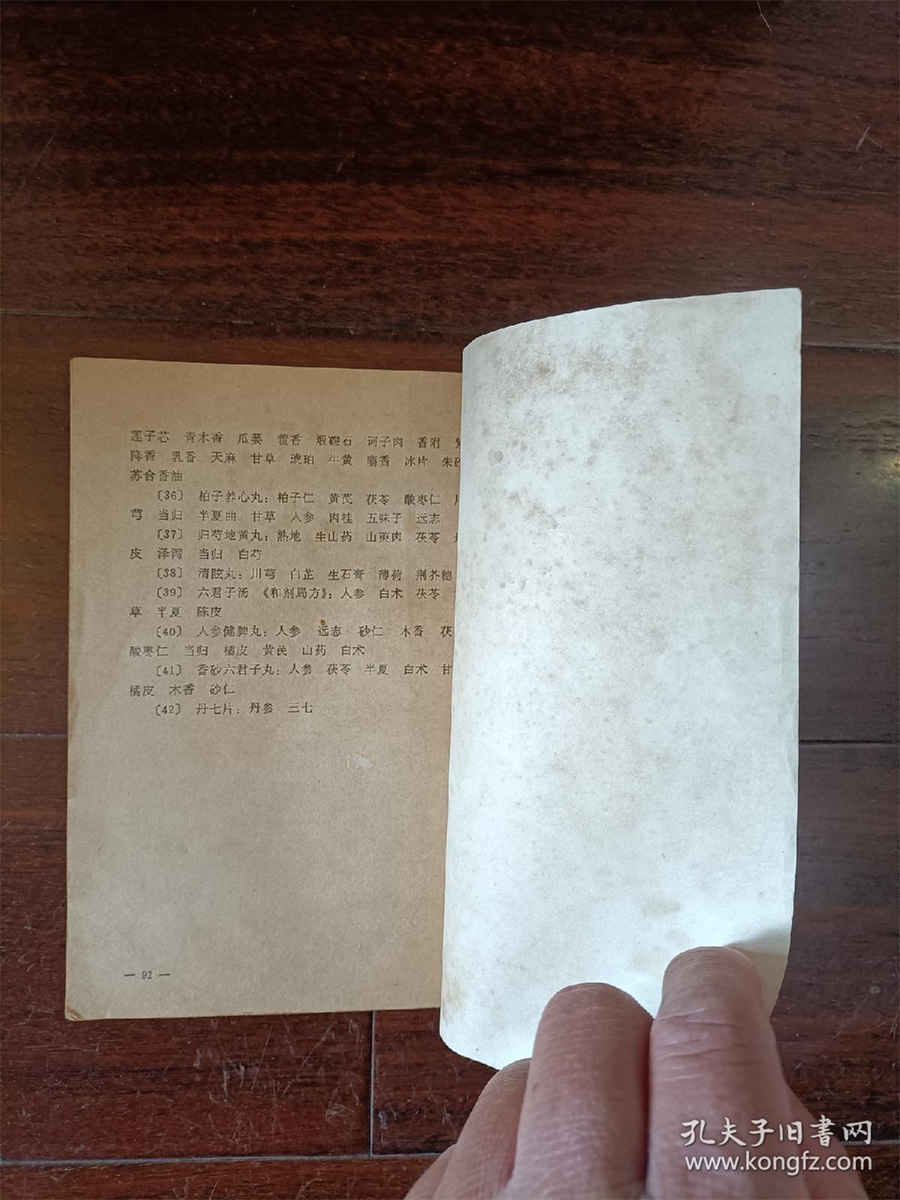 莲子芯 青木香 瓜蒌 藿香 煅礞石 诃子肉 香附
降香 乳香 天麻 甘草 琥珀 牛黄 麝香 冰片 朱砂
苏合香油
〔36〕 柏子养心丸：柏子仁 黄芪 茯苓 酸枣仁
芎 当归 半夏曲 甘草 人参 肉桂 五味子 远志
〔37〕 归芍地黄丸：熟地 生山药 山萸肉 茯苓
皮 泽泻 当归 白芍
〔38〕 清眩丸：川芎 白芷 生石膏 薄荷 荆芥穗
〔39〕 六君子汤 《和剂局方》：人参 白术 茯苓
草 半夏 陈皮
〔40〕 人参健脾丸：人参 远志 砂仁 木香 茯
酸枣仁 当归 橘皮 黄芪 山药 白术
〔41〕 香砂六君子丸：人参 茯苓 半夏 白术 甘
橘皮 木香 砂仁
〔42〕 丹七片：丹参 三七
— 92 —
孔夫子旧书网
www.kongfz.com